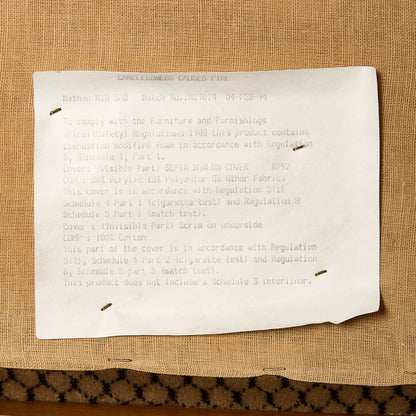 CARELESSNESS CAUSES FIRE
Nathan N18 3RD Batch No.:N27014 04-FEB-94
To comply with the Furniture and Furnishings
(Fire)(Safety) Regulations 1988 this product contains
combustion modified foam in accordance with Regulation
6, Schedule 1, Part 1.
Cover: (Visible Part) SEPIA DRALON COVER 8797
80% Acrylic 15% Polyester 5% Other Fabrics
This cover is in accordance with Regulation 5(1)
Schedule 4 Part 1 (cigarette test) and Regulation 8
Schedule 5 Part 1 (match test).
Cover : (Invisible Part) Scrim on underside
COMP : 100% Cotton
This part of the cover is in accordance with Regulation
5(2), Schedule 4 Part 2 (cigarette test) and Regulation
8, Schedule 5 part 3 (match test).
This product does not include a Schedule 3 interliner.